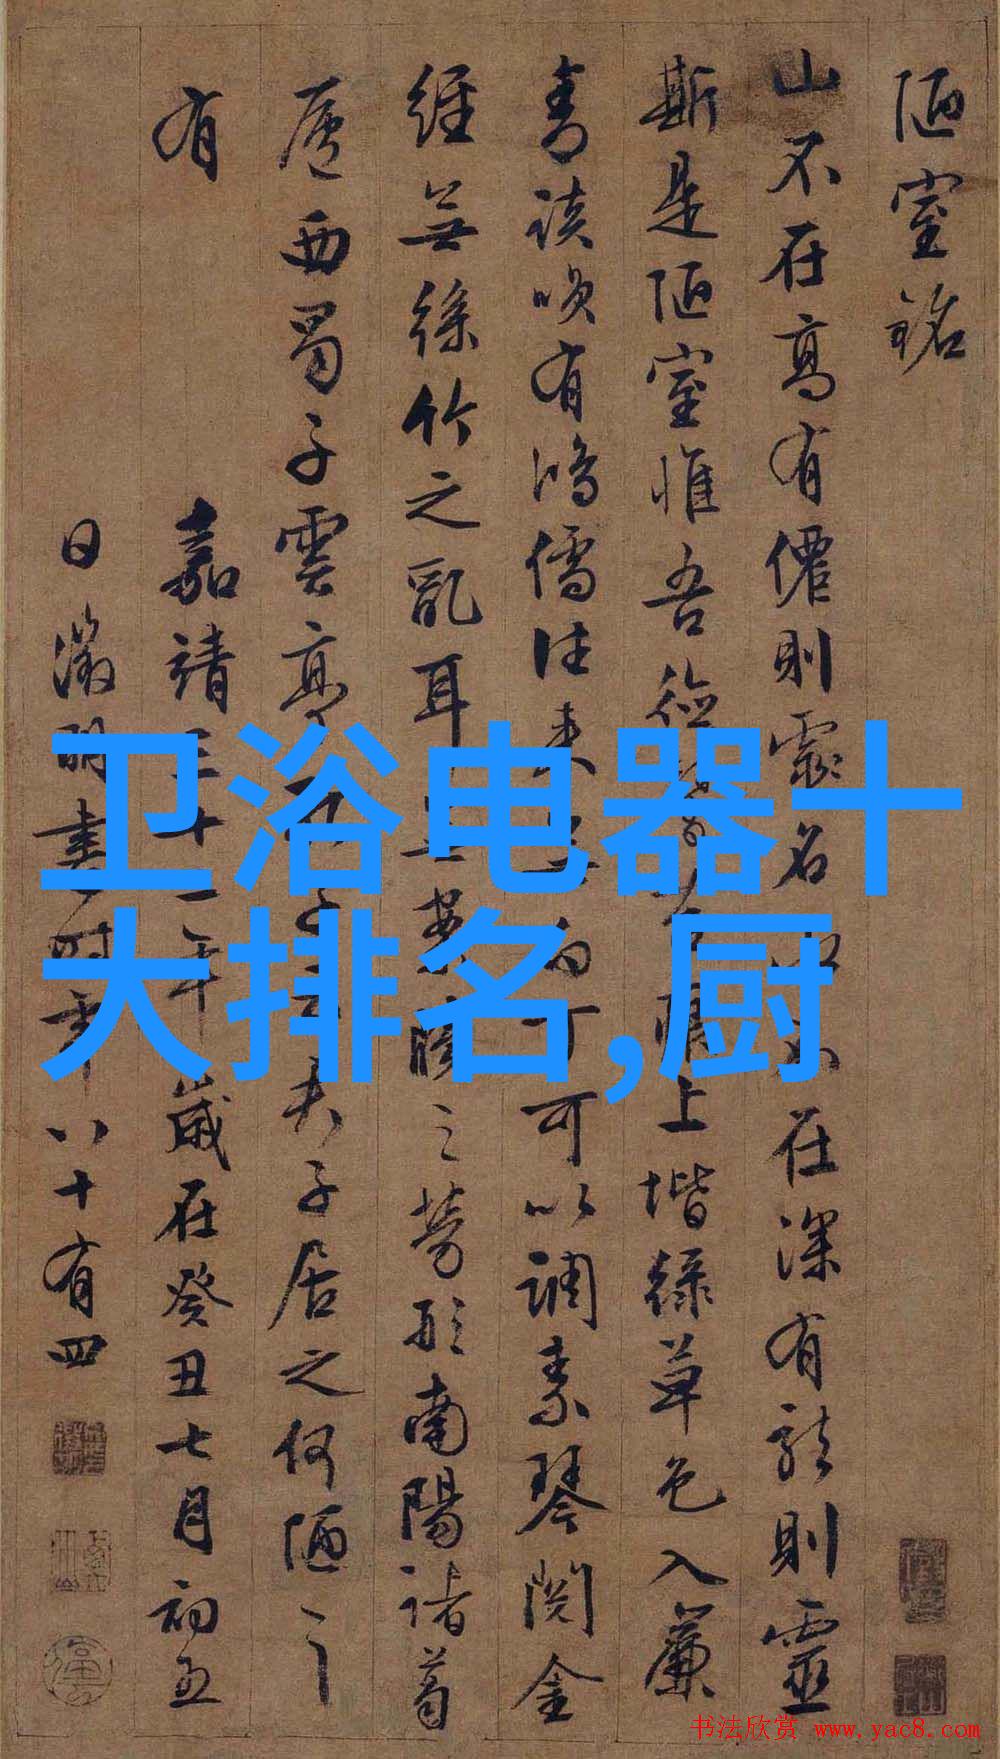 卫浴电器十
大排名,厨
陋室銘
山不在高有僊則靈名在深有龍則靈
斯是陋室惟吾德馨苔痕上堦綠草色入簾
青談笑有鴻儒往来無白丁可以調素琴閱金
經無絲竹之亂耳無案牘之勞形南陽諸葛
廬西蜀子雲亭孔子云夫子居之何陋之
有
嘉靖三十二年歲在癸丑七月初五
日徵明書時年八十有四
书法欣赏 www.yac8.com